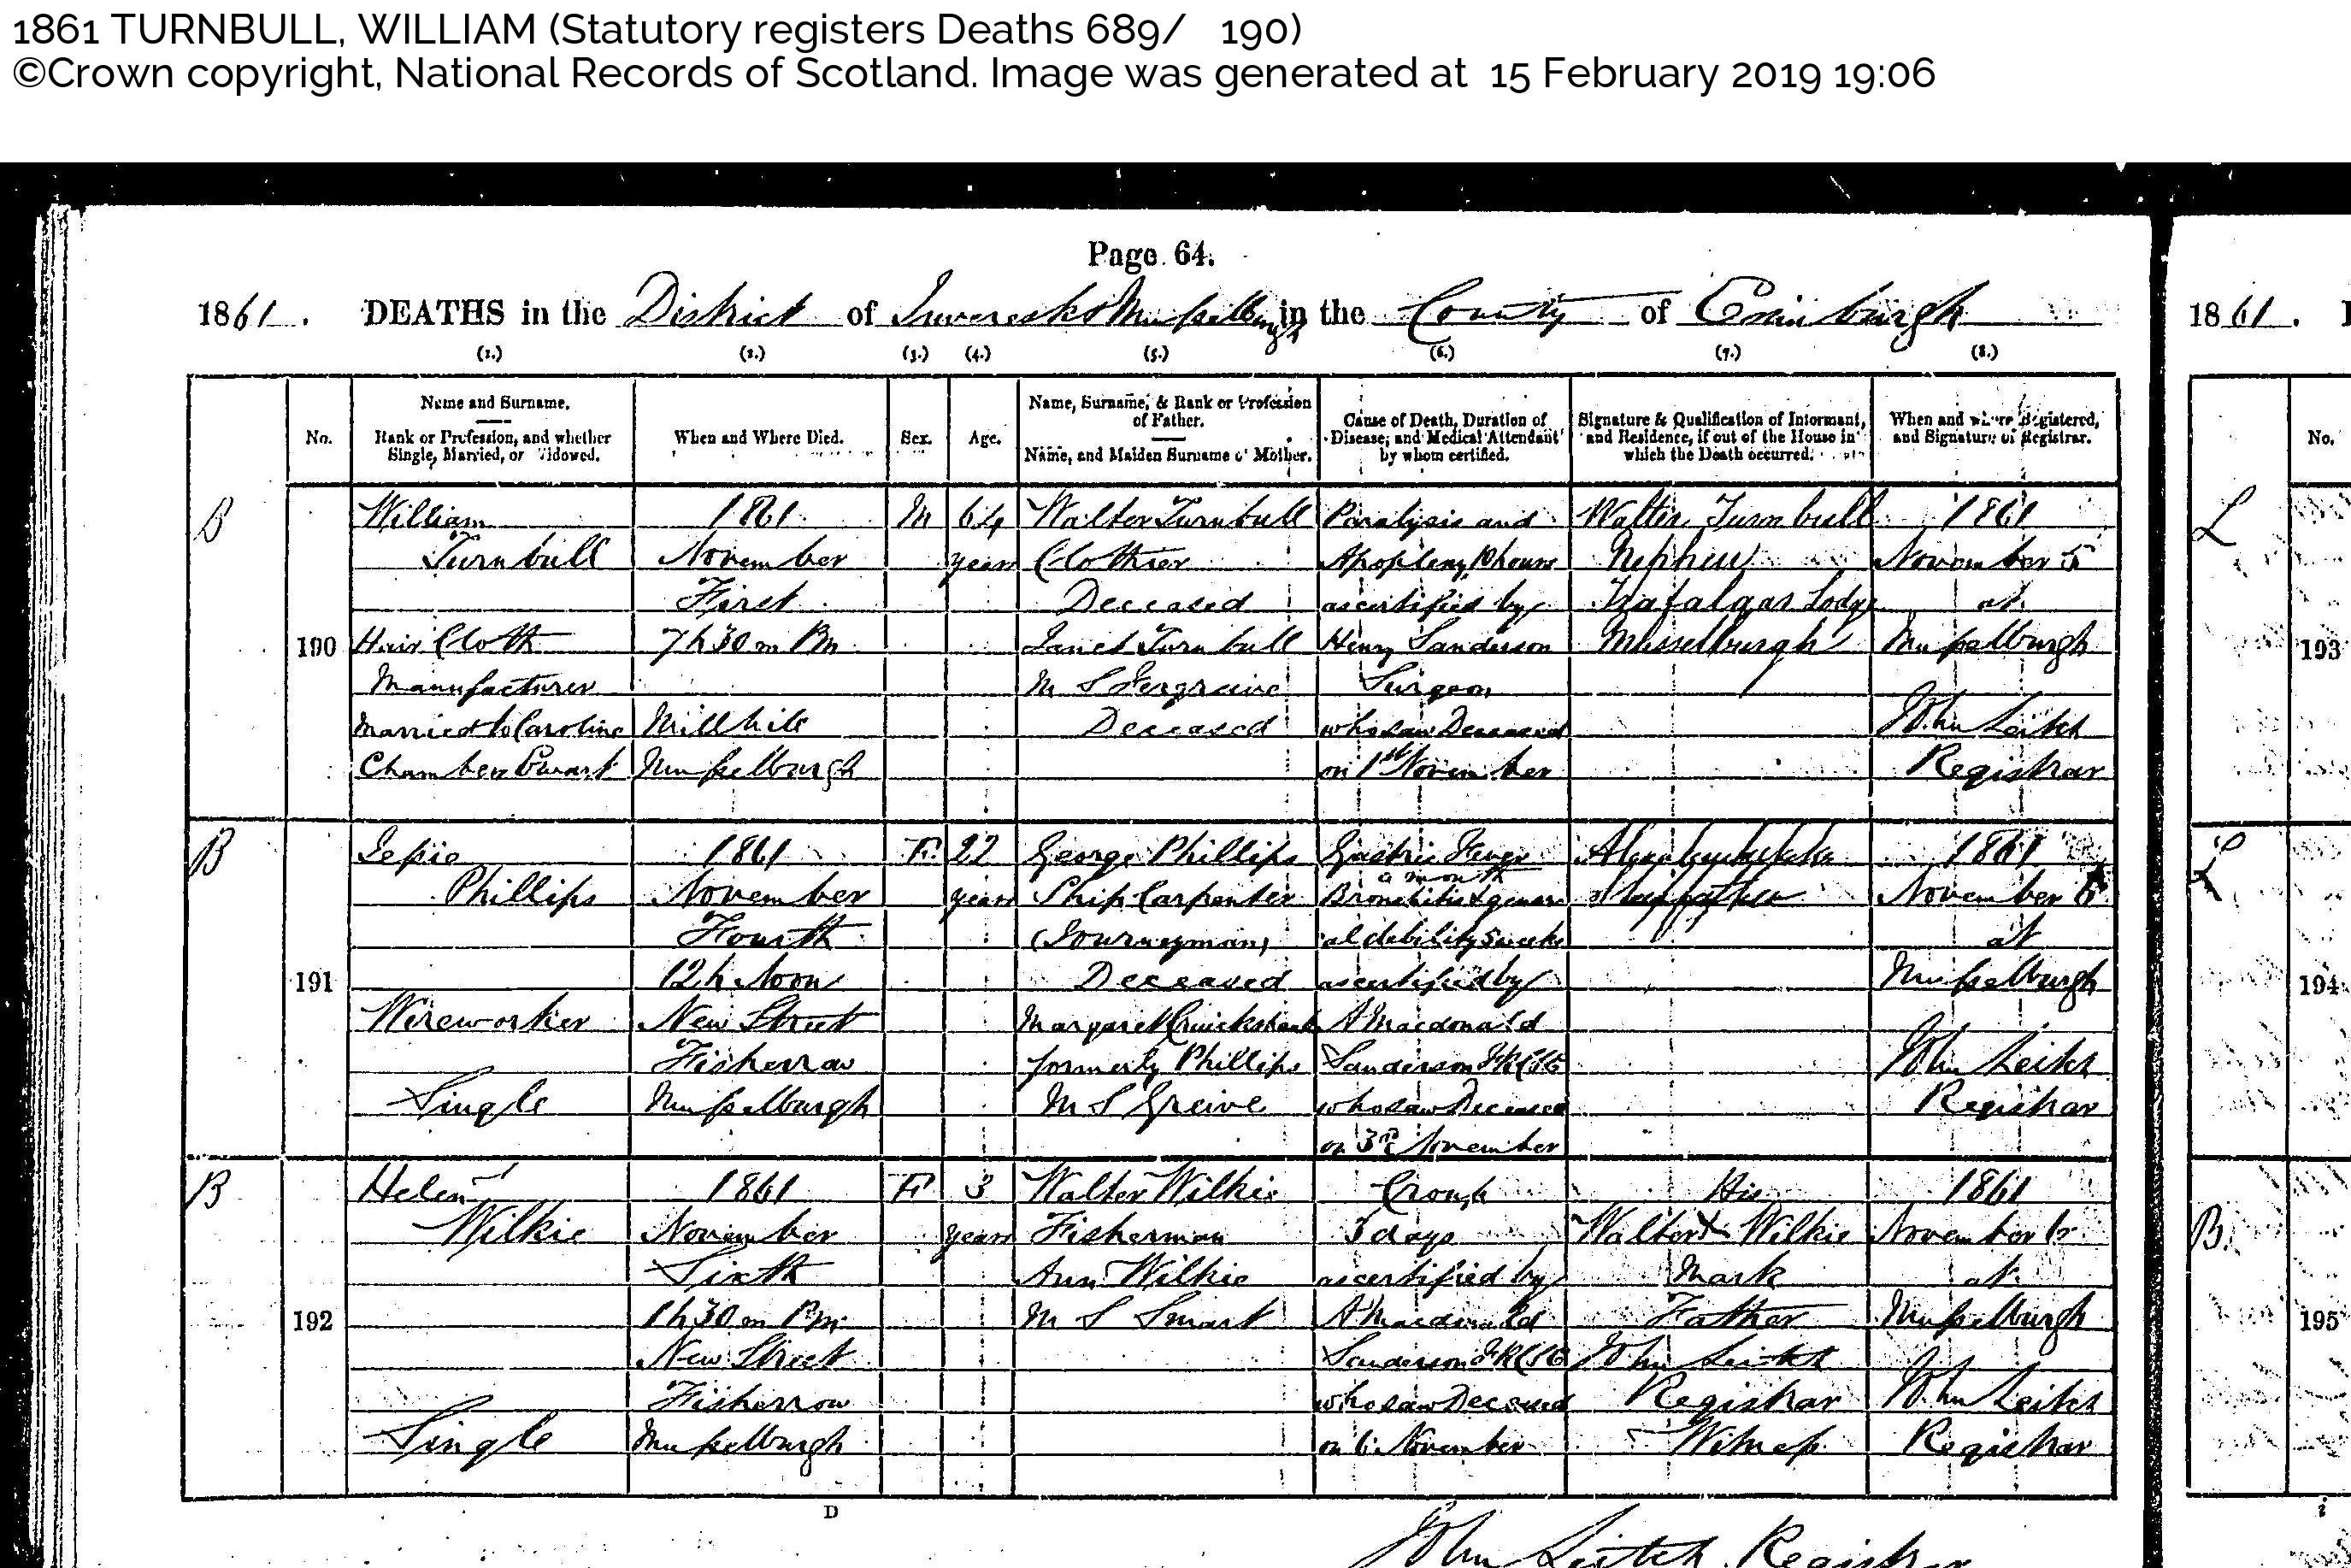 1861 TURNBULL, WILLIAM (Statutory registers Deaths 689/ 190)
©Crown copyright, National Records of Scotland. Image was generated at 15 February 2019 19:06
Page 64.
1861. DEATHS in the District of Inveresk & Musselburgh in the County of Edinburgh
(1.) (2.) (3.) (4.) (5.) (6.) (7.) (8.)
No.
Name and Surname.
Rank or Profession, and whether
Single, Married, or Widowed.
When and Where Died.
Sex.
Age.
Name, Surname, & Rank or Profession
of Father.
Name, and Maiden Surname of Mother.
Cause of Death, Duration of
Disease, and Medical Attendant
by whom certified.
Signature & Qualification of Informant,
and Residence, if out of the House in
which the Death occurred.
When and where Registered,
and Signature of Registrar.
B
190
William
Turnbull
Hair Cloth
Manufacturer
Married to Caroline
Chambers Ewart
1861
November
First
7h 30m PM
Millhill
Musselburgh
M
64
years
Walter Turnbull
Clothier
Deceased
Janet Turnbull
M S
Deceased
Paralysis and
Apoplexy, hours
as certified by
Henry Sanderson
Surgeon
who saw Deceased
on 1st November
Walter Turnbull
Nephew
Trafalgar Lodge
Musselburgh
1861
November 5
at
Musselburgh
John Leitch
Registrar
B
191
Jessie
Phillips
Wireworker
Single
1861
November
Fourth
12h Noon
New Street
Fisherrow
Musselburgh
F
22
years
George Phillips
Ship Carpenter
(Journeyman)
Deceased
Margaret Cruickshank
formerly Phillips
M S Greive
Gastric Fever
a month
Bronchitis & gener
al debility 5 weeks
as certified by
A Macdonald
Sanderson FRCSE
who saw Deceased
on 3rd November
Stepfather
1861
November 6
at
Musselburgh
John Leitch
Registrar
B
192
Helen
Wilkie
Single
1861
November
Sixth
1h 30m PM
New Street
Fisherrow
Musselburgh
F
3
years
Walter Wilkie
Fisherman
Ann Wilkie
M S Smart
Croup
3 days
as certified by
A Macdonald
Sanderson FRCSE
who saw Deceased
on 6 November
His
Walter X Wilkie
Mark
Father
John Leitch
Registrar
Witness
1861
November 6
at
Musselburgh
John Leitch
Registrar
D
John Leitch Registrar
1861.
No.
L
193
L
194
B
195